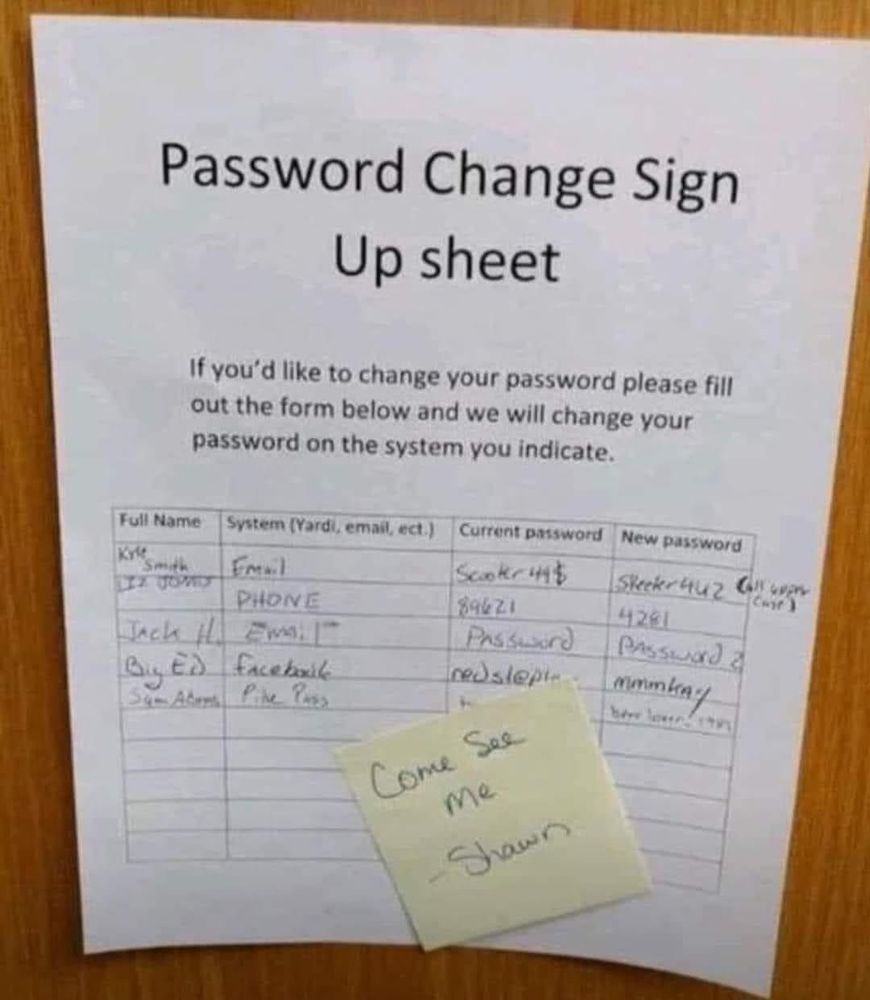 Password Change Sign
Up sheet
If you'd like to change your password please fill
out the form below and we will change your
password on the system you indicate.
Full Name System (Yardi, email, ect.) Current password New password
Kyle Smith Email Scooter 44$ Skeeter442 (all upper case)
Liz Jones PHONE 89621 4281
Jack H. Email Password Password 2
Big Ed facebook mmmkay
Sam Adams Pike Pass
Come See
me
- Shawn